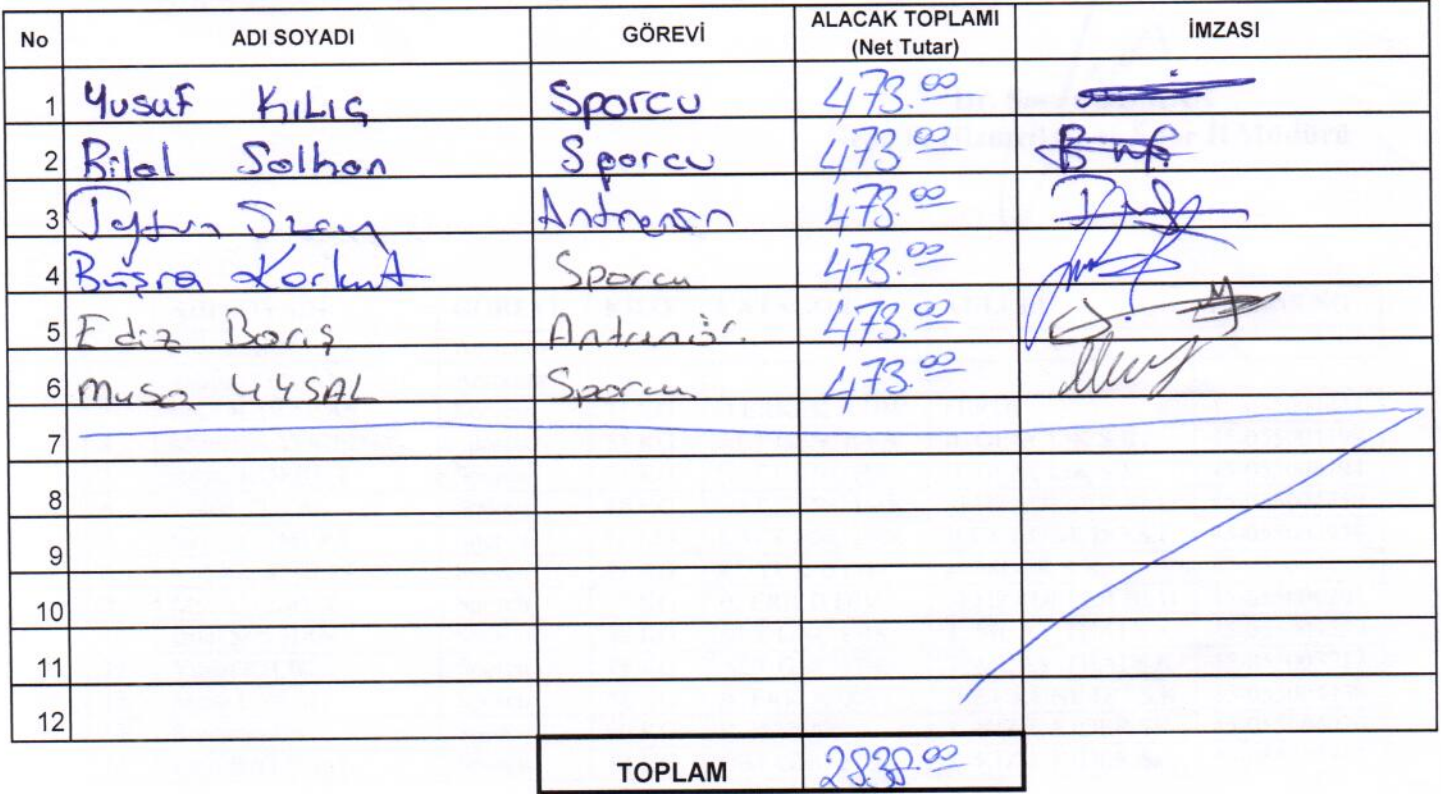 No ADI SOYADI GÖREVİ ALACAK TOPLAMI (Net Tutar) İMZASI
1 Yusuf KILIÇ Sporcu 473.00
2 Bilal Solhan Sporcu 473.00
3 Antrenör 473.00
4 Büşra Korkut Sporcu 473.00
5 Ediz Barış Antrenör. 473.00
6 Musa UYSAL Sporcu 473.00
7
8
9
10
11
12
TOPLAM 2838.00